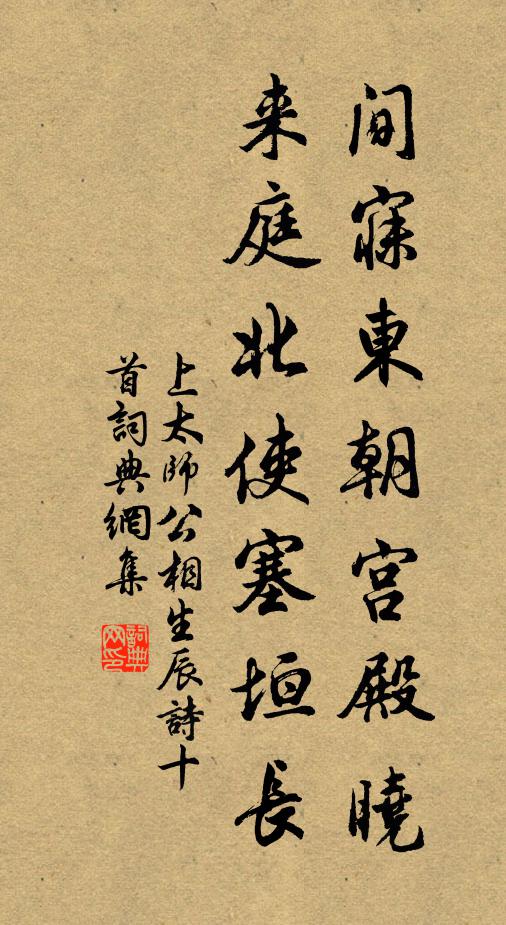 间寐東朝宫殿曉
来庭北使塞垣長
上太師公相生辰詩十
首詞典網集
詞典
网印